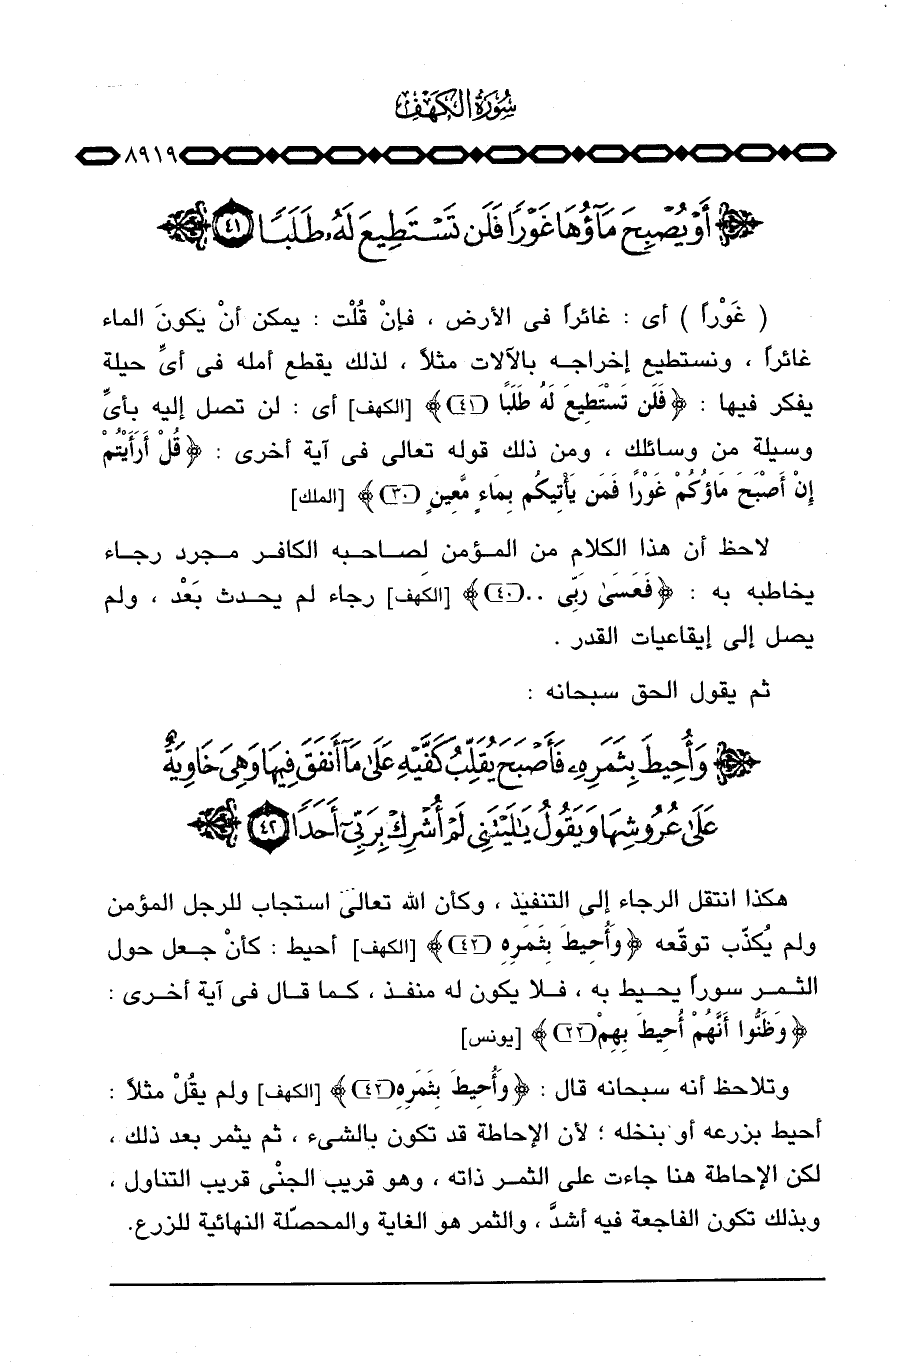 سُورَةُ الكَهْفِ
٨٩١٩
أَوْ يُصْبِحَ مَآؤُهَا غَوْرًا فَلَن تَسْتَطِيعَ لَهُۥ طَلَبًا ٤١
( غَوْراً ) أى : غائراً فى الأرض ، فإنْ قُلْت : يمكن أنْ يكونَ الماء
غائراً ، ونستطيع إخراجه بالآلات مثلاً ، لذلك يقطع أمله فى أىِّ حيلة
يفكر فيها : ﴿فَلَن تَسْتَطِيعَ لَهُ طَلَبًا (٤١)﴾ [الكهف] أى : لن تصل إليه بأىِّ
وسيلة من وسائلك ، ومن ذلك قوله تعالى فى آية أخرى : ﴿قُلْ أَرَأَيْتُمْ
إِنْ أَصْبَحَ مَاؤُكُمْ غَوْرًا فَمَن يَأْتِيكُم بِمَاءٍ مَّعِينٍ (٣٠)﴾ [الملك]
لاحظ أن هذا الكلام من المؤمن لصاحبه الكافر مجرد رجاء
يخاطبه به : ﴿فَعَسَىٰ رَبِّى ..(٤٠)﴾ [الكهف] رجاء لم يحدث بَعْد ، ولم
يصل إلى إيقاعيات القدر .
ثم يقول الحق سبحانه :
وَأُحِيطَ بِثَمَرِهِۦ فَأَصْبَحَ يُقَلِّبُ كَفَّيْهِ عَلَىٰ مَآ أَنفَقَ فِيهَا وَهِىَ خَاوِيَةٌ
عَلَىٰ عُرُوشِهَا وَيَقُولُ يَٰلَيْتَنِى لَمْ أُشْرِكْ بِرَبِّىٓ أَحَدًا ٤٢
هكذا انتقل الرجاء إلى التنفيذ ، وكأن الله تعالى استجاب للرجل المؤمن
ولم يُكذّب توقّعه ﴿وَأُحِيطَ بِثَمَرِهِ (٤٢)﴾ [الكهف] أحيط : كأنْ جعل حول
الثمر سوراً يحيط به ، فلا يكون له منفذ ، كما قال فى آية أخرى :
﴿وَظَنُّوا أَنَّهُمْ أُحِيطَ بِهِمْ(٢٢)﴾ [يونس]
وتلاحظ أنه سبحانه قال : ﴿وَأُحِيطَ بِثَمَرِهِ(٤٢)﴾ [الكهف] ولم يقُلْ مثلاً :
أحيط بزرعه أو بنخله ؛ لأن الإحاطة قد تكون بالشىء ، ثم يثمر بعد ذلك ،
لكن الإحاطة هنا جاءت على الثمر ذاته ، وهو قريب الجنْى قريب التناول ،
وبذلك تكون الفاجعة فيه أشدَّ ، والثمر هو الغاية والمحصلّة النهائية للزرع.